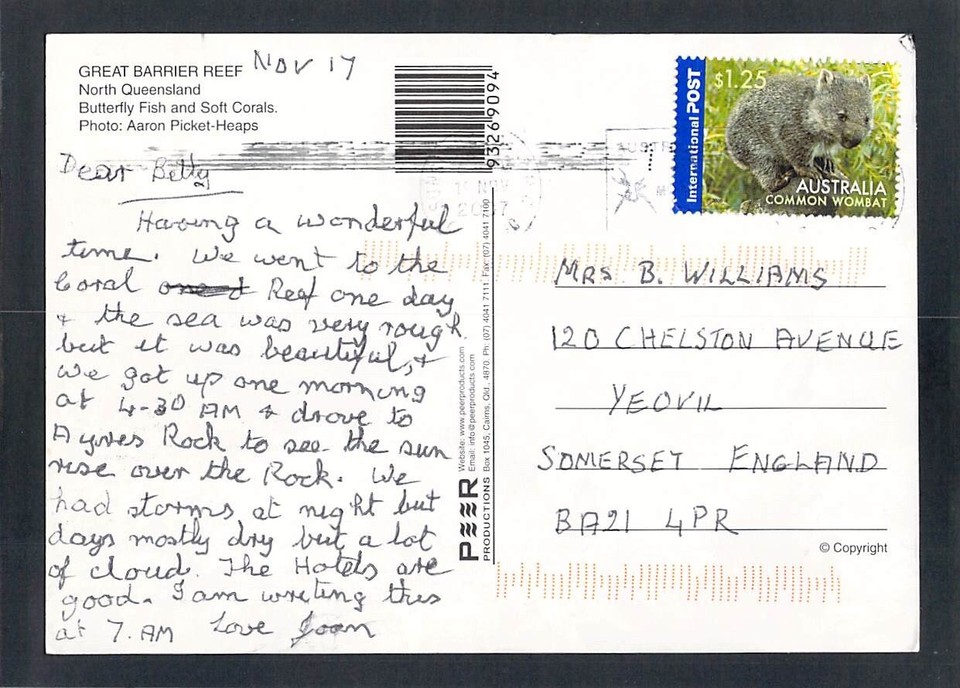 GREAT BARRIER REEF
North Queensland
Butterfly Fish and Soft Corals.
Photo: Aaron Picket-Heaps
NOV 17
93269094
Dear Betty
Having a wonderful
time. We went to the
Coral Reef one day
+ the sea was very rough
but it was beautiful, +
we got up one morning
at 4-30 AM + drove to
Ayres Rock to see the sun
rise over the Rock. We
had storms at night but
days mostly dry but a lot
of cloud. The Hotels are
good. I am writing this
at 7. AM Love Joan
PEER
PRODUCTIONS Box 1045, Cairns, Qld., 4870. Ph: (07) 4041 7111. Fax: (07) 4041 7100
Website: www.peerproducts.com
Email: info@peerproducts.com
International POST
$1.25
AUSTRALIA
COMMON WOMBAT
MRS B. WILLIAMS
120 CHELSTON AVENUE
YEOVIL
SOMERSET ENGLAND
BA21 4PR
© Copyright